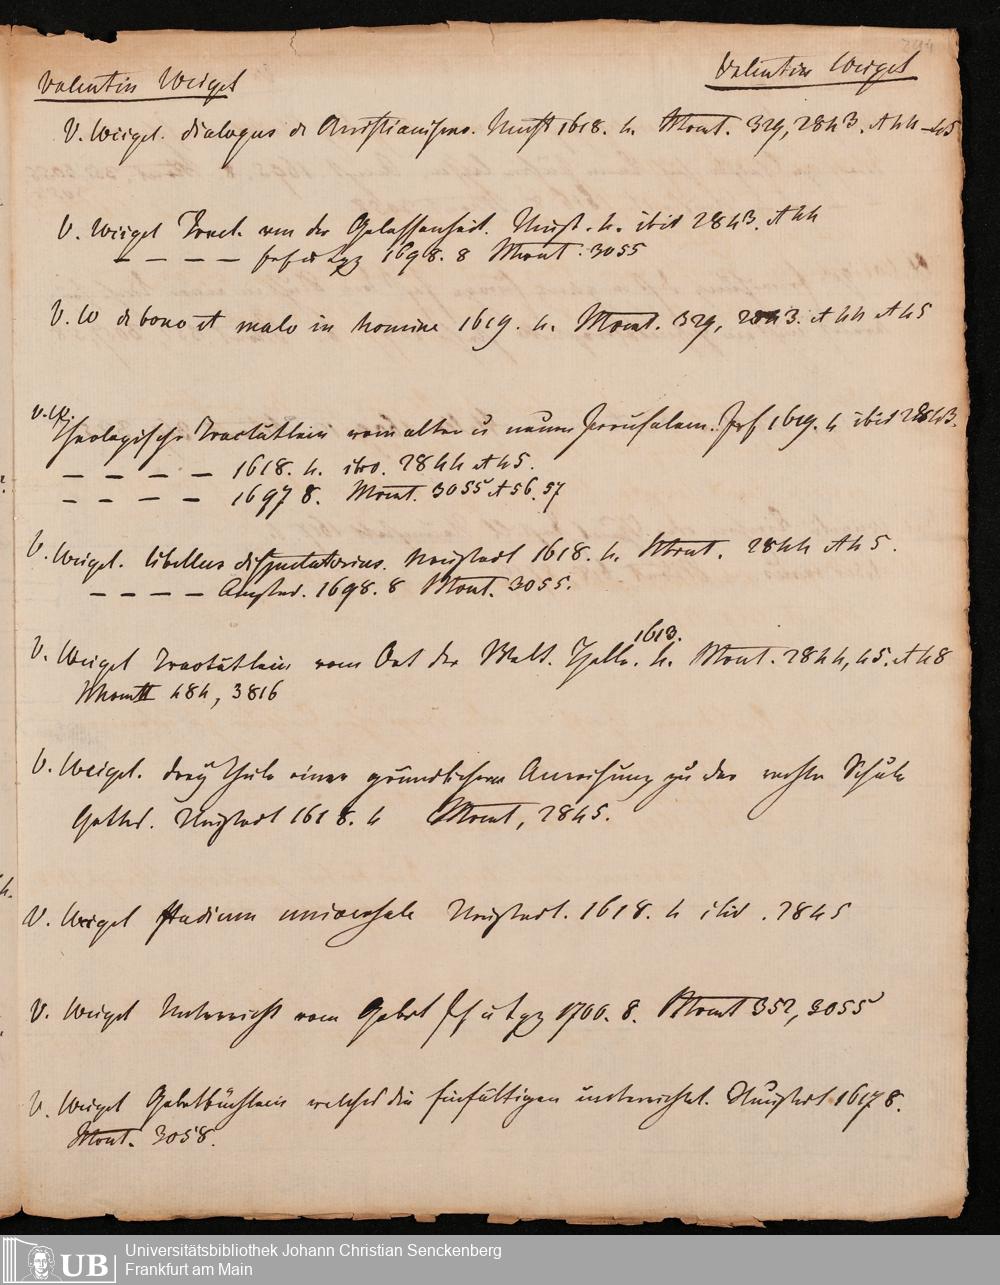 Valentin Weigel
Valentin Weigel
V. Weigel. dialogus de Christianismo. Neust 1618. 4. Mscrt. 329, 2843. et 44 - 45
V. Weigel Tract. von der Gelassenheit. Neust. 4. ibid 2843. et 44
— — — — frf u Lpz 1698. 8 Mscrt. 3055
V. W de bono et malo in homine 1619. 4. 329, 2843. et 44 et 45
V. W. Theologische Tractätlein vom alten u neuen Jerusalem. Frf 1619. 4 ibid 2843.
— — — — 1618. 4. ibid. 2844 et 45.
— — — — 1697 8. 3055 et 56. 57
V. Weigel. libellus disputatorius. Neustadt 1618. 4. 2844 et 45.
— — — — Amsterd. 1698. 8 3055.
V. Weigel Tractätlein vom Ort der Welt. Halle. 1613. 4. 2844, 45. et 48
484, 3816
V. Weigel. drey theile einer gründlichen Anweisung zu der rechten Schule
Gottes. Neustadt 1618. 4 2845.
V. Weigel Studium universale Neustadt. 1618. 4 ibid. 2845
V. Weigel Unterricht vom Gebet Frf u Lpz 1700. 8. 352, 3055
V. Weigel Gebetbüchlein welches die Einfältigen unterrichtet. Neustadt 1617 8.
3058.
UB
Universitätsbibliothek Johann Christian Senckenberg
Frankfurt am Main